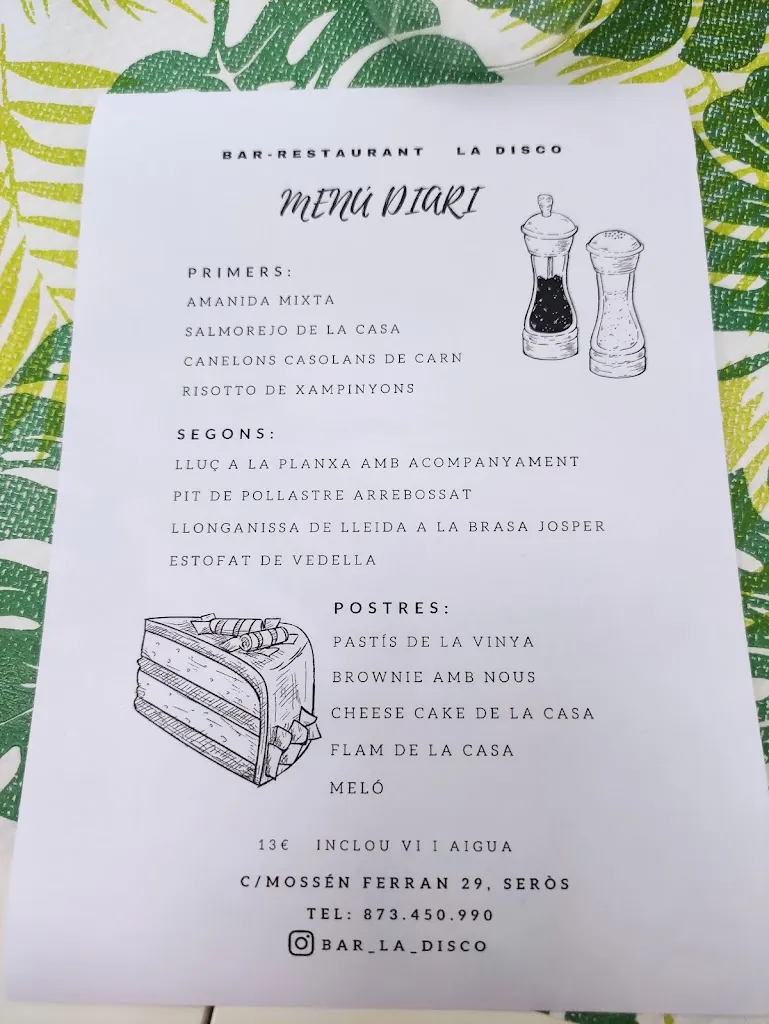 BAR-RESTAURANT LA DISCO
MENÚ DIARI
PRIMERS:
AMANIDA MIXTA
SALMOREJO DE LA CASA
CANELONS CASOLANS DE CARN
RISOTTO DE XAMPINYONS
SEGONS:
LLUÇ A LA PLANXA AMB ACOMPANYAMENT
PIT DE POLLASTRE ARREBOSSAT
LLONGANISSA DE LLEIDA A LA BRASA JOSPER
ESTOFAT DE VEDELLA
POSTRES:
PASTÍS DE LA VINYA
BROWNIE AMB NOUS
CHEESE CAKE DE LA CASA
FLAM DE LA CASA
MELÓ
13€ INCLOU VI I AIGUA
C/MOSSÉN FERRAN 29, SERÒS
TEL: 873.450.990
BAR_LA_DISCO